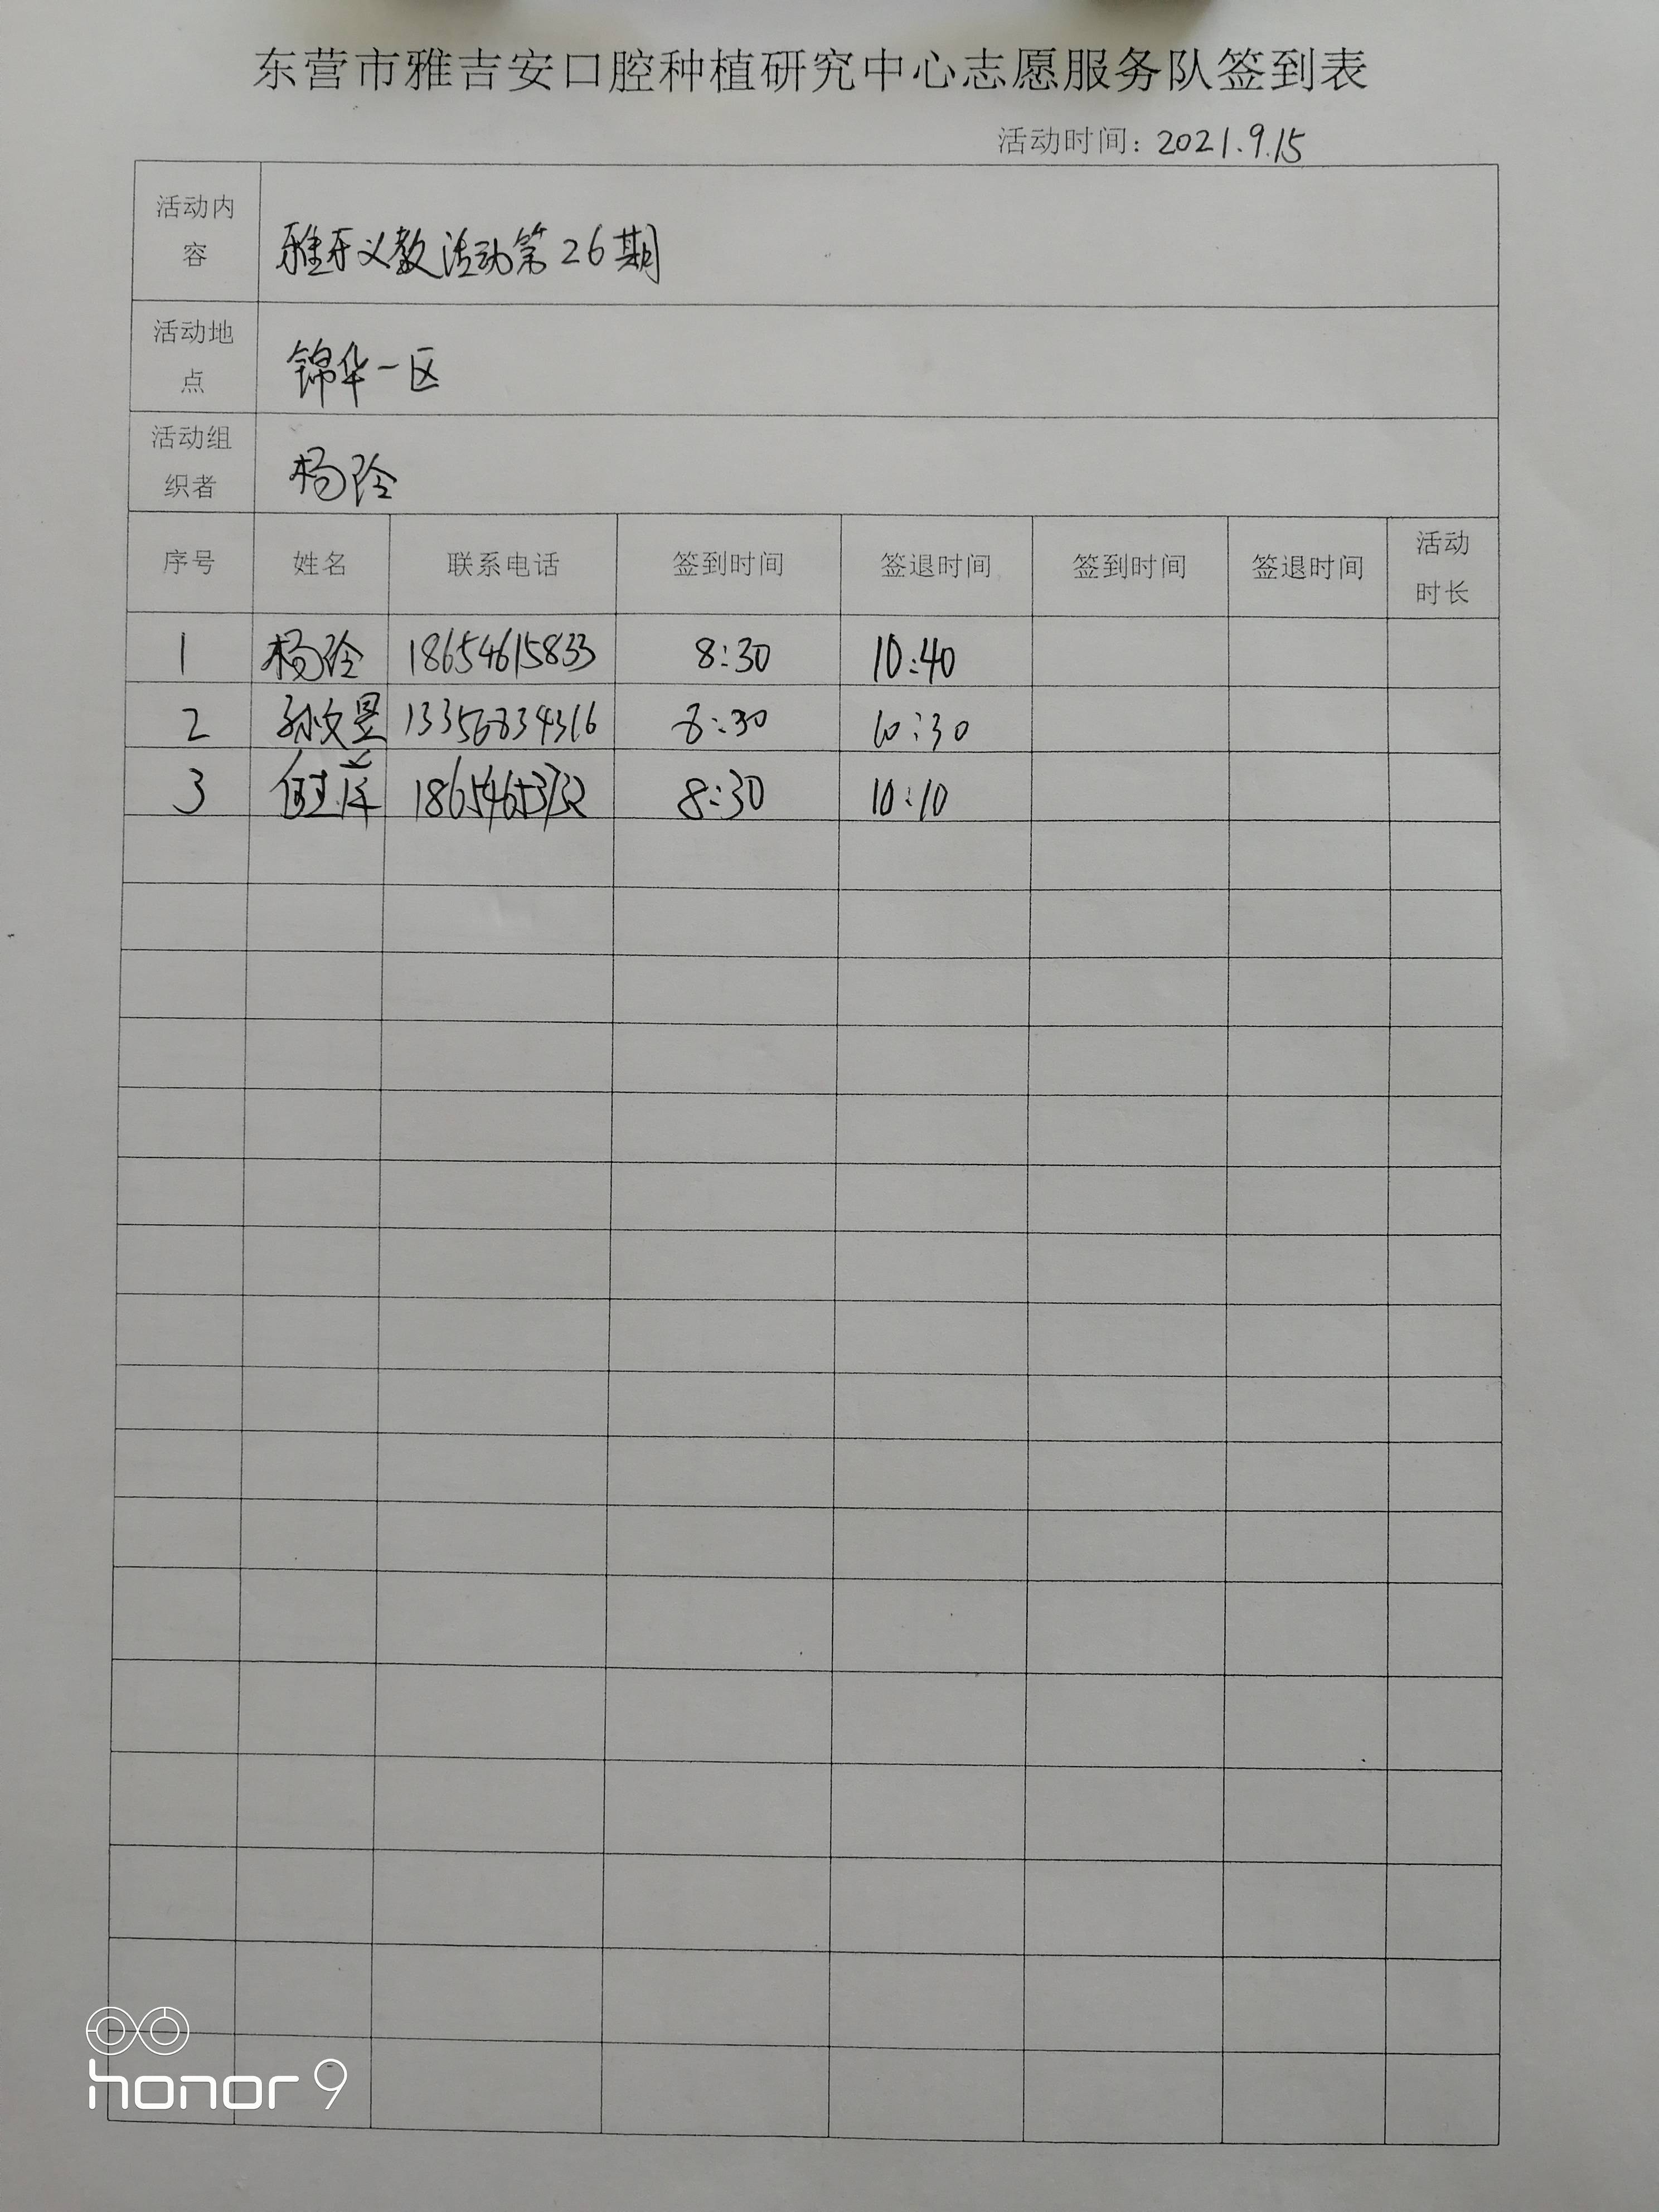 东营市雅吉安口腔种植研究中心志愿服务队签到表
活动时间: 2021.9.15
活动内容 雅牙义教活动第26期
活动地点 锦华一区
活动组织者 杨玲
序号 姓名 联系电话 签到时间 签退时间 签到时间 签退时间 活动时长
1 杨玲 18654615833 8:30 10:40
2 孙文昱 13356834316 8:30 10:30
3 8:30 10:10
honor 9